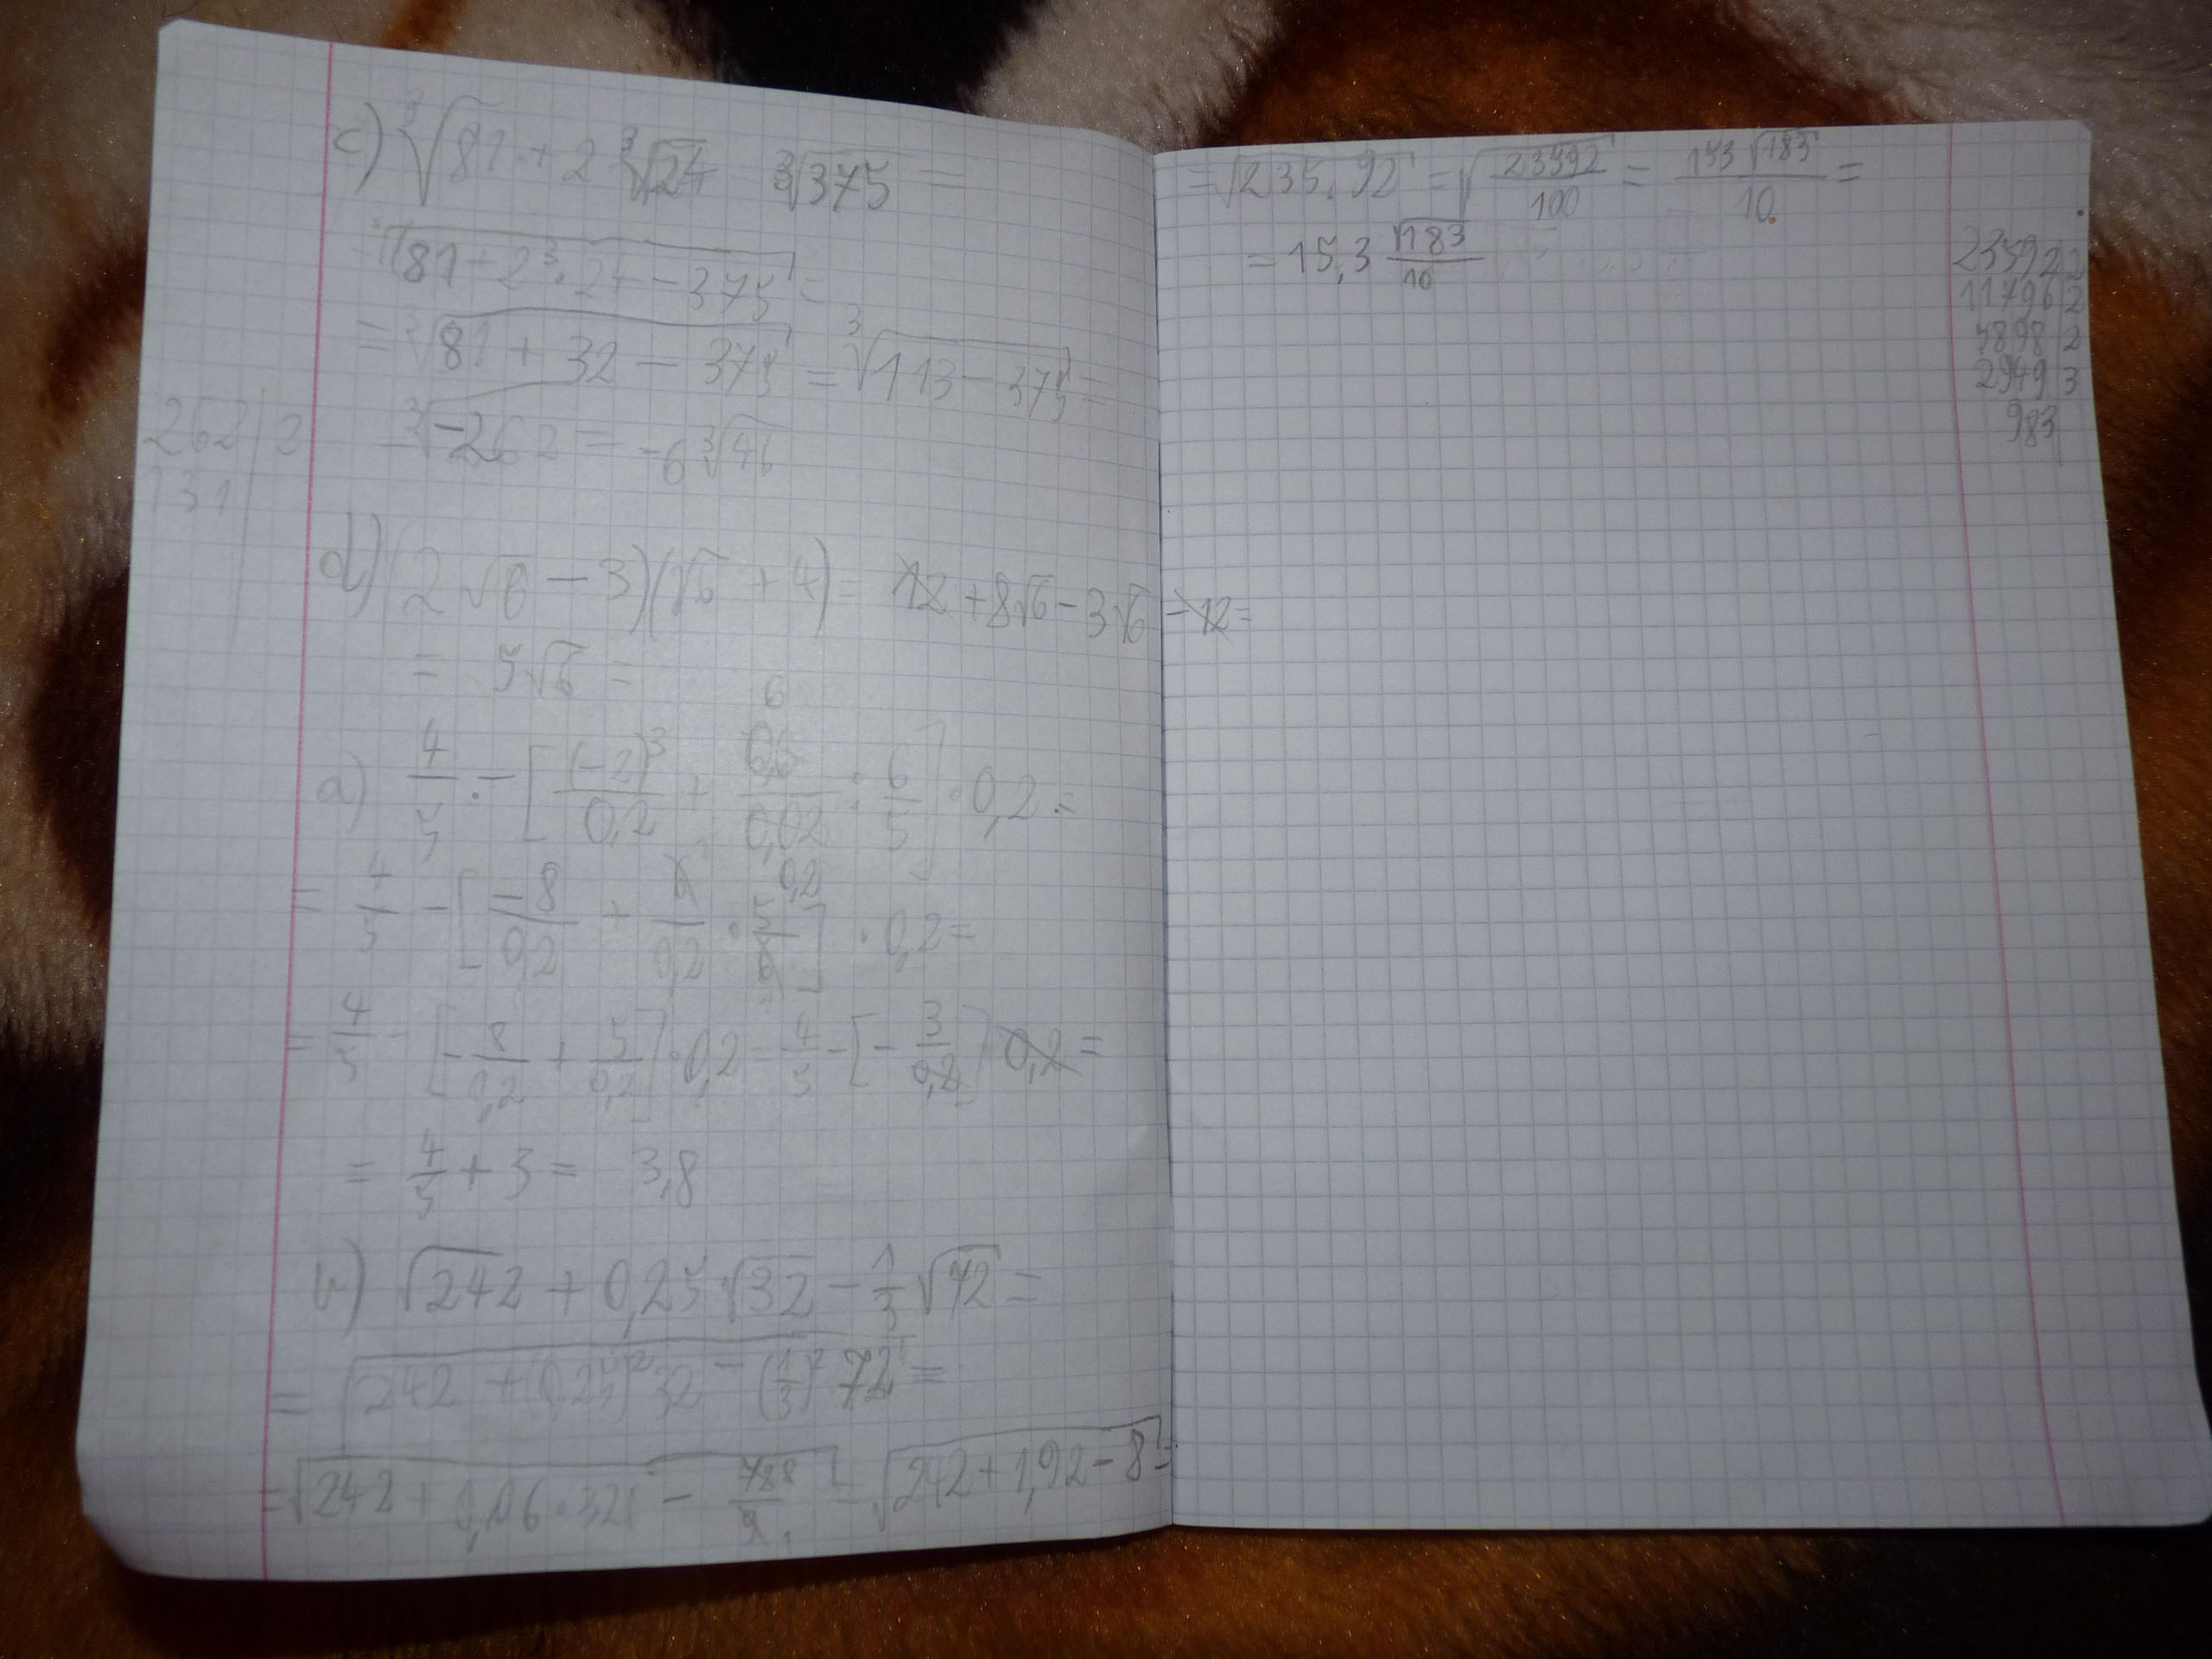 c) ∛81 + 2∛24 ∛375 =
∛(81 + 2³·24 - 375) =
= ∛(81 + 32 - 375) = ∛(113 - 375) =
262 | 2
131
∛-262 = -6∛46
d) (2√6 - 3)(√6 + 4) = 12 + 8√6 - 3√6 - 12 =
= 5√6 =
6
a) 4/5 - [(-2)³/0,2 + 0,6/0,02 : 6/5] · 0,2 =
= 4/5 - [-8/0,2 + 6/0,2 · 5/6] · 0,2 =
= 4/5 - [-8/0,2 + 5/0,2] · 0,2 = 4/5 - [-3/0,2] 0,2 =
= 4/5 + 3 = 3,8
b) √242 + 0,25√32 - 1/3 √72 =
= √(242 + (0,25)² 32 - (1/3)² 72) =
= √(242 + 0,06·32 - 72/9) = √(242 + 1,92 - 8) =
= √235,92 = √(23592/100) = 153√183/10 =
= 15,3 √183/10
23592 | 2
11796 | 2
5898 | 2
2949 | 3
983